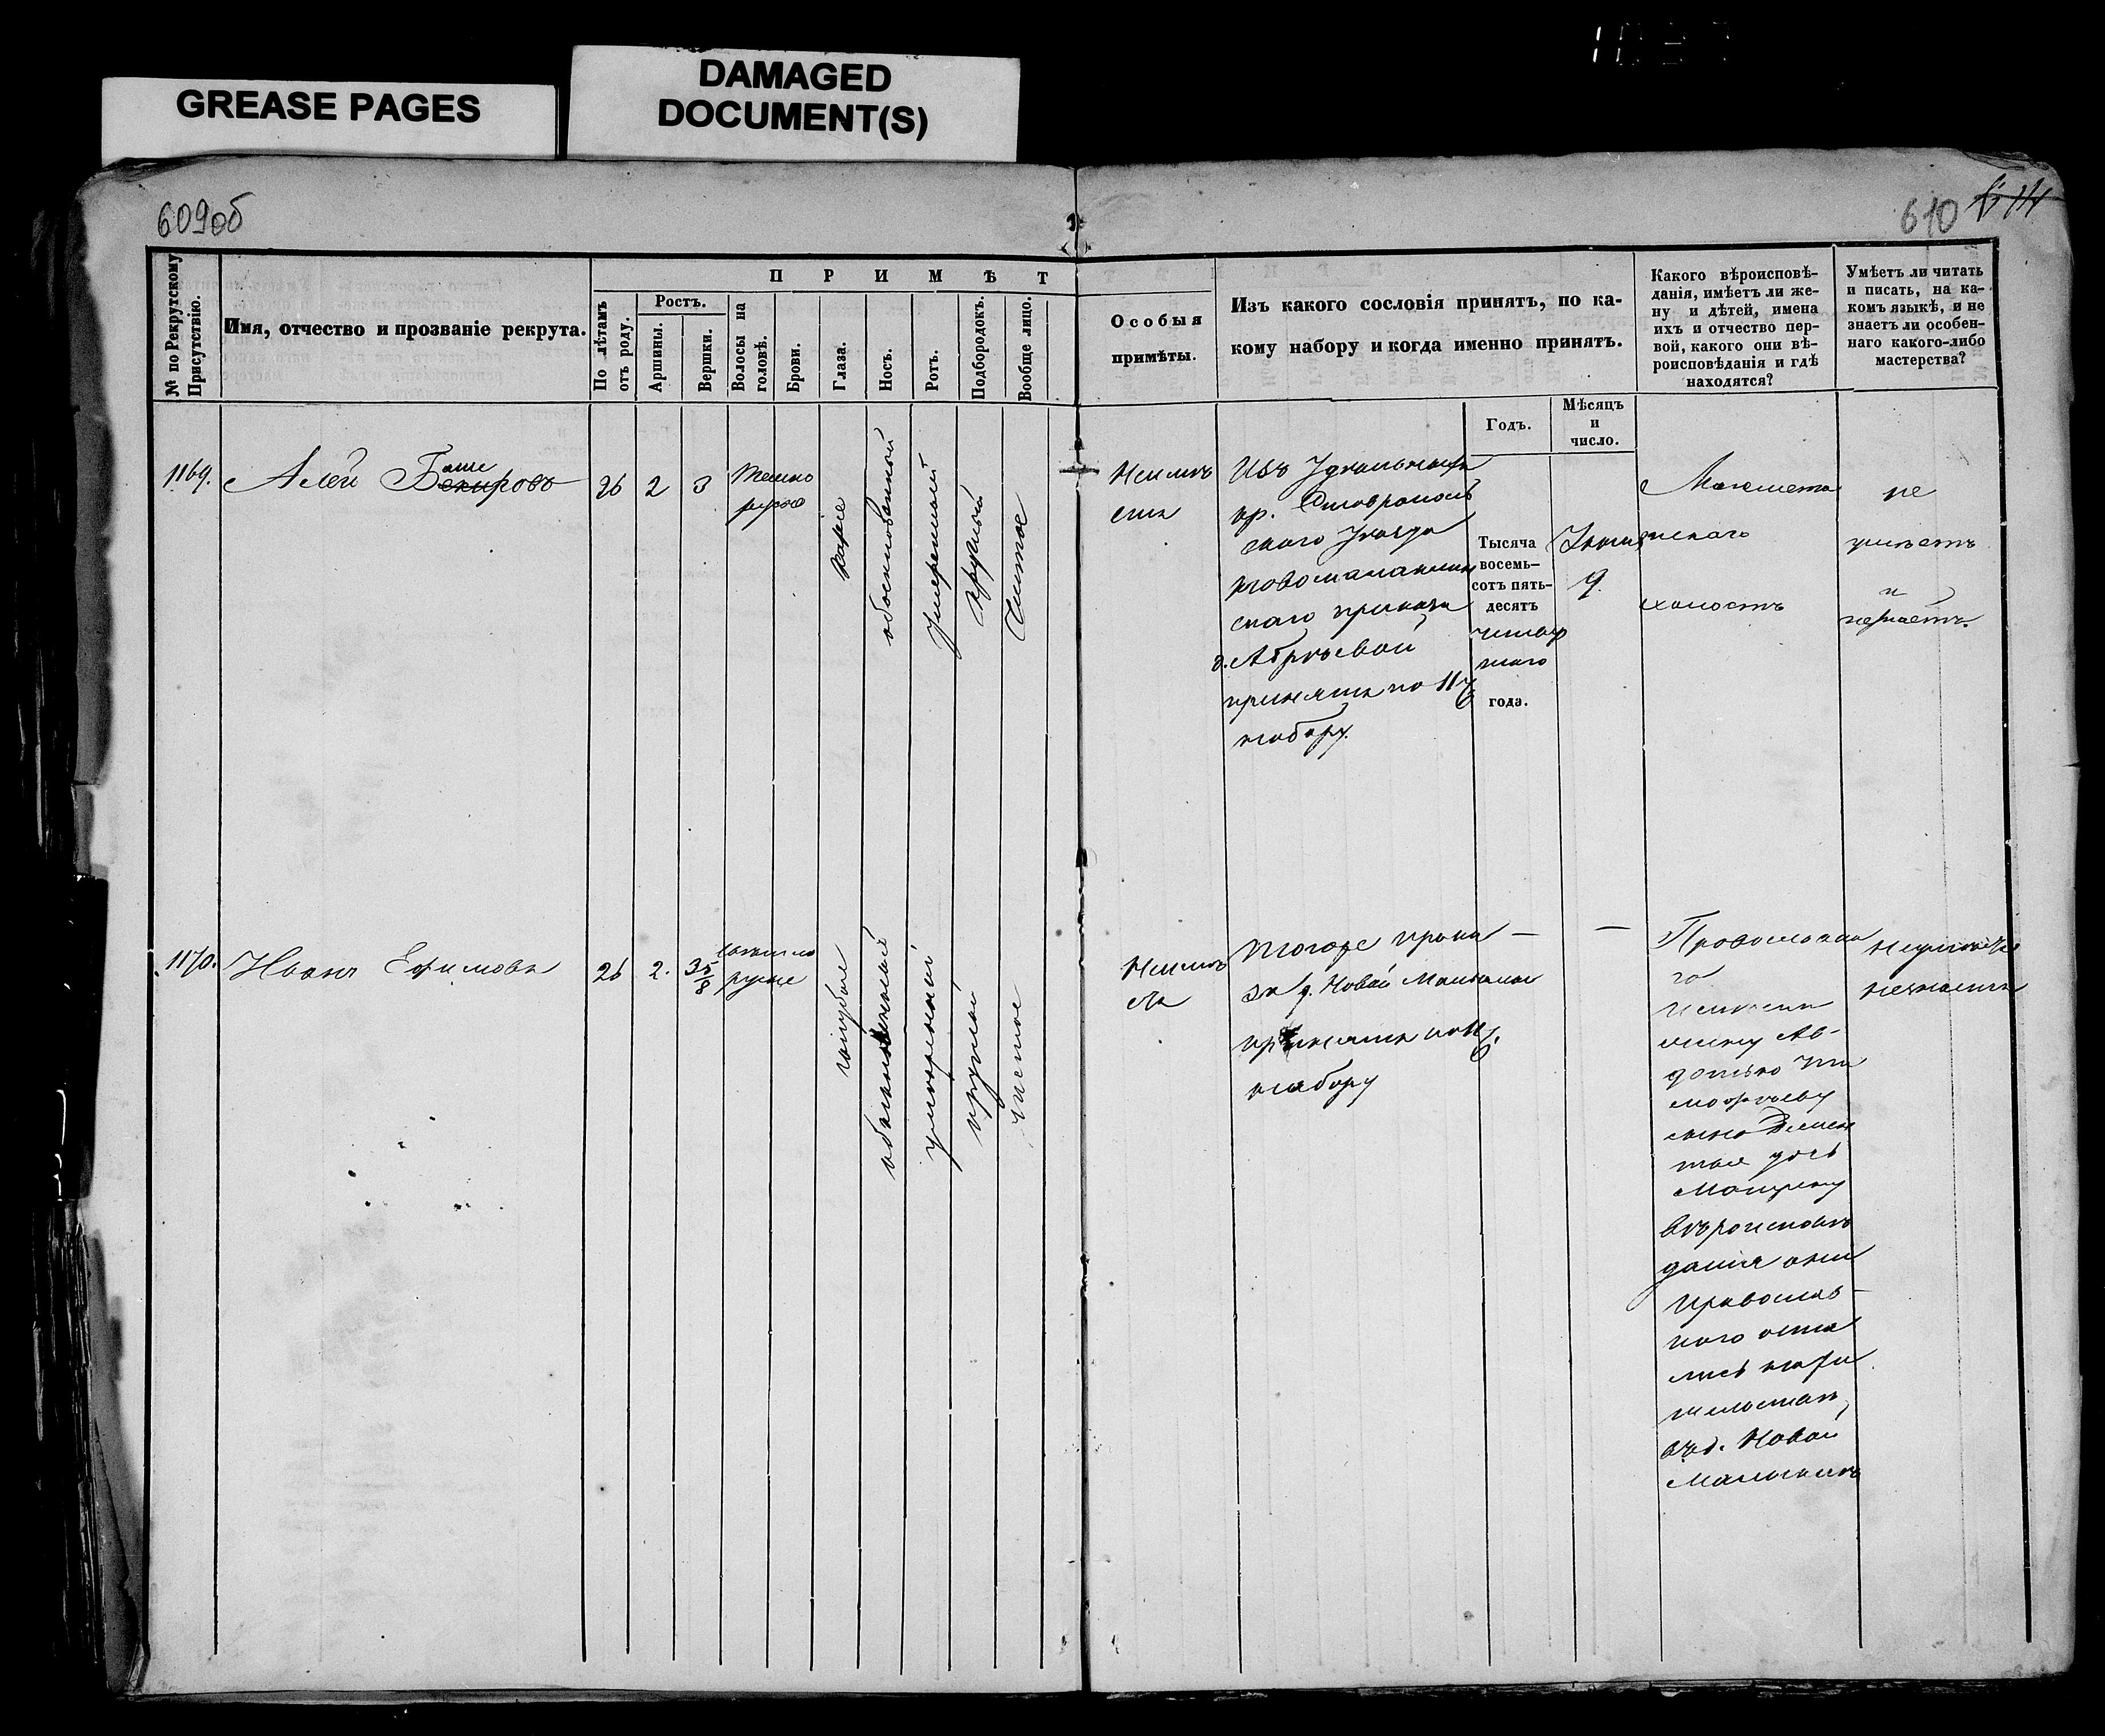 GREASE PAGES
DAMAGED
DOCUMENT(S)
609об
610
№ по Рекрутскому
Присутствію.
Имя, отчество и прозваніе рекрута.
ПРИМѢТ
По лѣтамъ
отъ роду.
Ростъ.
Аршины.
Вершки.
Волосы на
головѣ.
Брови.
Глаза.
Носъ.
Ротъ.
Подбородокъ.
Вообще лицо.
Особыя
примѣты.
Изъ какого сословія принятъ, по ка-
кому набору и когда именно принятъ.
Годъ.
Мѣсяцъ
и
число.
Какого вѣроисповѣ-
данія, имѣетъ ли же-
ну и дѣтей, имена
ихъ и отчество пер-
вой, какого они вѣ-
роисповѣданія и гдѣ
находятся?
Умѣетъ ли читать
и писать, на ка-
комъ языкѣ, и не
знаетъ ли особен-
наго какого-либо
мастерства?
1169.
Алей Бекировъ
аше
26
2
3
темно
русые
карие
обыкновенной
умеренный
круглый
Чистое
Неимѣ
етъ
Изъ Удельныхъ
кр. Ставрополь
скаго Уезда
новомалыклин
скаго приказа
д. Абреевой
принятъ по 11ч
набору.
Тысяча
восемь-
сотъ пять-
десятъ
четвер
таго
года.
9.
Магомета
нскаго
холостъ
не
умѣетъ
и
незнаетъ.
1170.
Иванъ Ефимовъ
26
2.
3 5/8
темно
русые
голубые
обыкновенный
умеренный
круглый
чистое
Неимѣ
етъ
Тогоже прика
за д. Новой Малыклы
принятъ по 11ч.
набору
—
—
Православна
го
имеетъ
жену Ав-
дотью Ти
мофееву
сына Демен
тья дочь
Матрену
вѣроисповѣ
дания они
Православ-
ного оста
лись нажи
тельствѣ
въ д. Новой
Малыклѣ
Неумѣетъ
незнаетъ